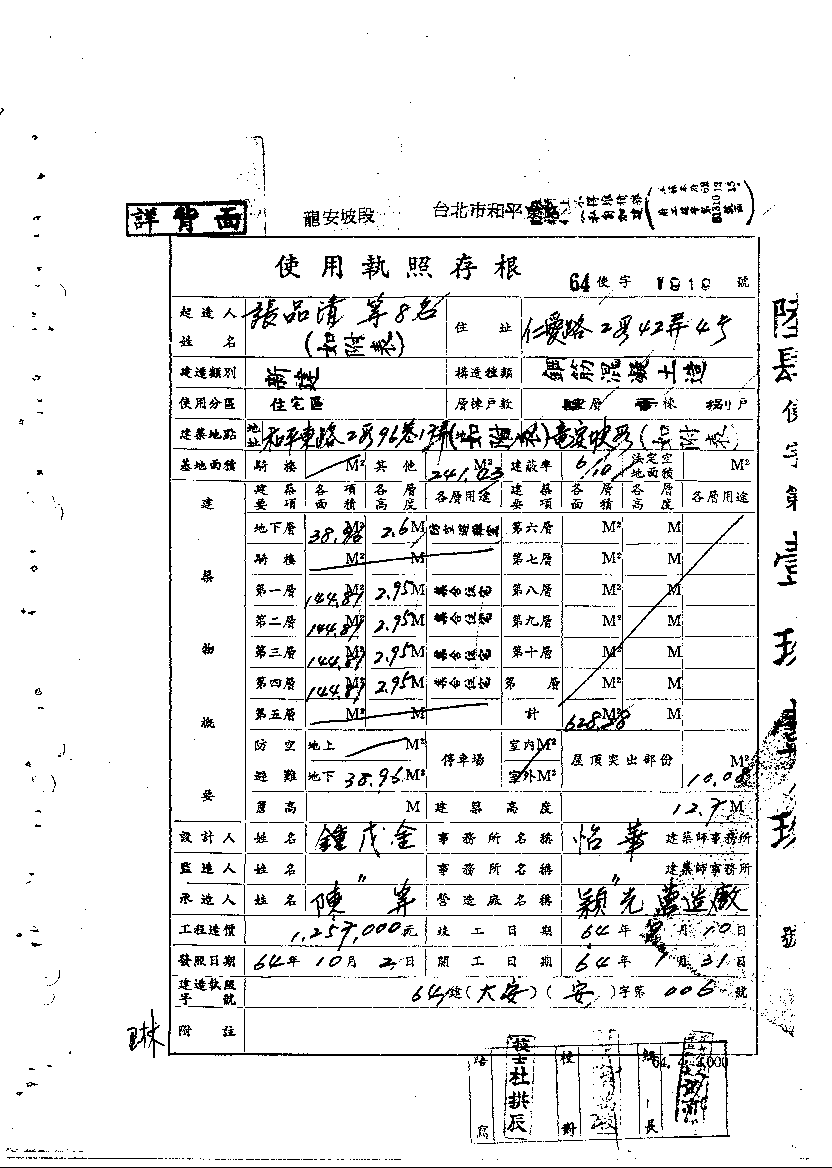 詳背面
龍安坡段 台北市和平
使用執照存根
64 使字 1919 號
起造人姓名 張品清 等8名 (如附表) 住址 仁愛路2段42弄4号
建造類別 新建 構造種類 鋼筋混凝土造
使用分區 住宅區 層棟戶數 層 棟 戶
建築地點 地址 和平東路2段96巷 (如附表)
基地面積 騎樓 M² 其他 241.03 M² 建蔽率 6/10 法定空地面積 M²
建築物概要
建築要項 各項面積 各層高度 各層用途 建築要項 各層面積 各層高度 各層用途
地下層 38.96 M² 2.6 M 第六層 M² M
騎樓 M² M 第七層 M² M
第一層 144.81 M² 2.95 M 集合住宅 第八層 M² M
第二層 144.81 M² 2.95 M 集合住宅 第九層 M² M
第三層 144.81 M² 2.95 M 集合住宅 第十層 M² M
第四層 144.81 M² 2.95 M 集合住宅 第 層 M² M
第五層 M² M 計 628.28 M² M
防空避難 地上 M² 停車場 室內 M² 屋頂突出部份 10.08 M²
地下 38.96 M² 室外 M²
簷高 M 建築高度 12.7 M
設計人 姓名 鍾茂金 事務所名稱 怡華 建築師事務所
監造人 姓名 〃 事務所名稱 〃 建築師事務所
承造人 姓名 陳 營造廠名稱 穎光營造廠
工程造價 1,257,000 元 竣工日期 64年 月10日
發照日期 64年10月2日 開工日期 64年1月31日
建造執照字號 64 建(大安)(安)字第 006 號
附註
琳
64. 4. 4,000
技士杜拱辰
校對
組長
陸肆使字第壹玖壹玖號